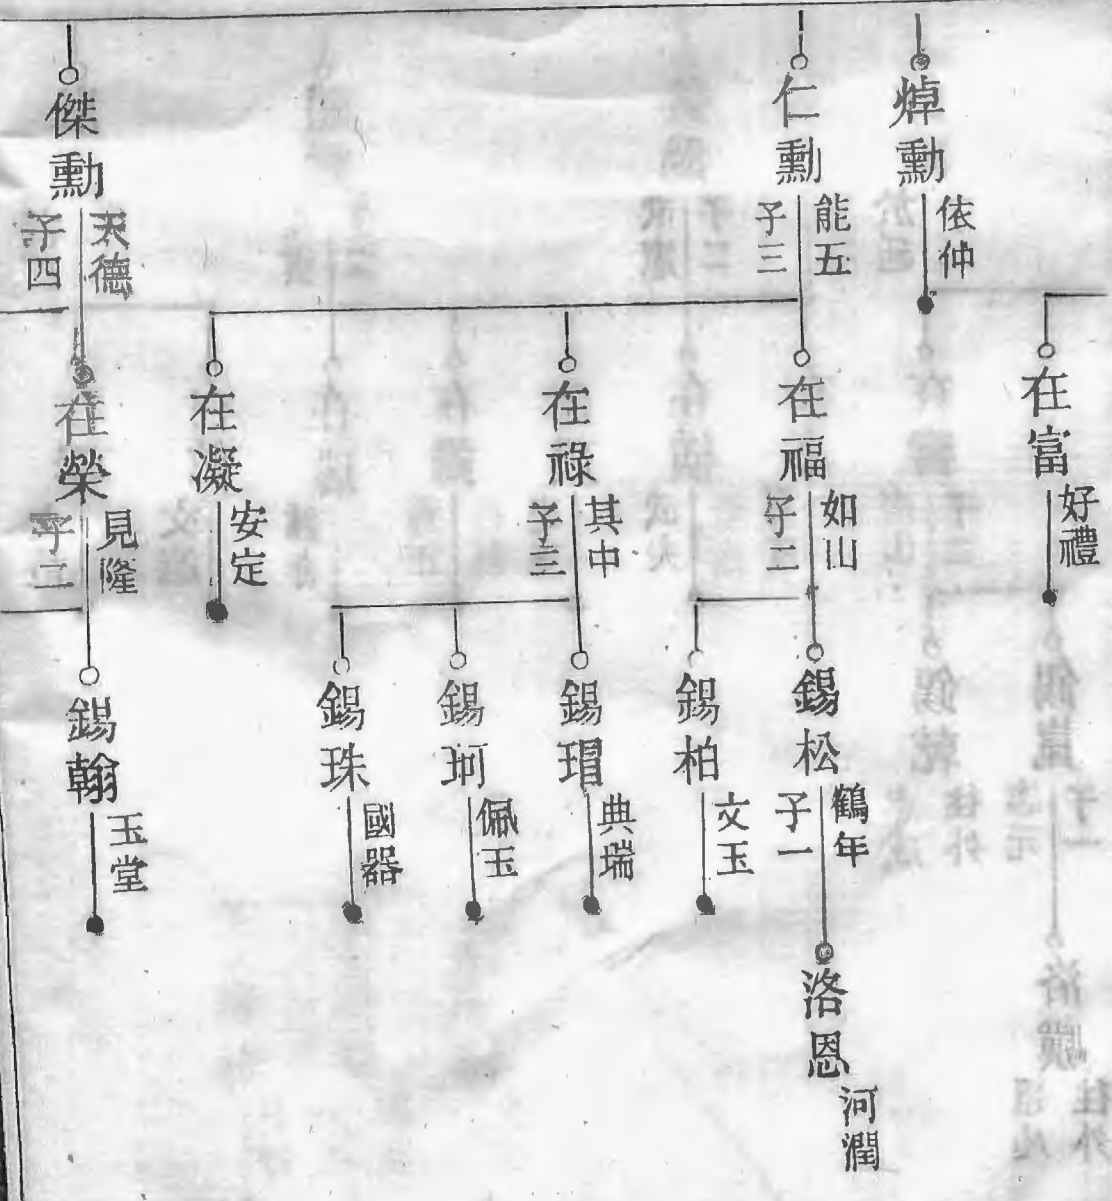 焯勳
依仲
仁勳
能五
子三
傑勳
天德
子四
在富
好禮
在福
如山
子二
在祿
其中
子三
在凝
安定
在榮
見隆
子二
錫松
鶴年
子一
錫柏
文玉
錫瑁
典瑞
錫珂
佩玉
錫珠
國器
錫翰
玉堂
洛恩
河潤